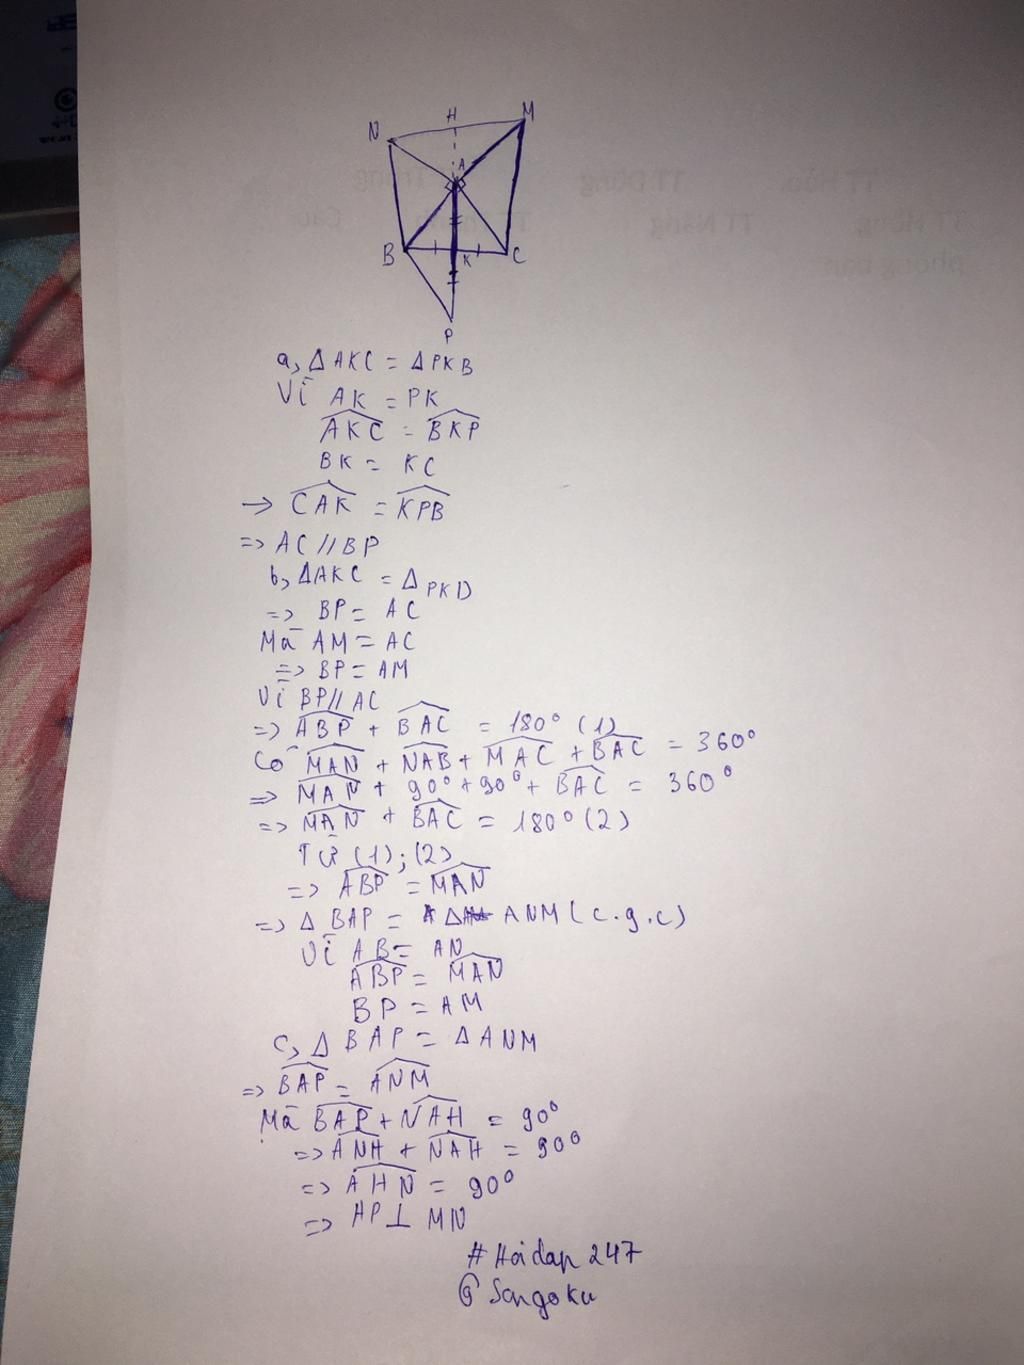 H
M
N
A
B
K
C
P
a, Δ AKC = Δ PKB
Vì AK = PK
AKC = BKP
BK = KC
→ CAK = KPB
=> AC // BP
b, Δ AKC = Δ PKD
=> BP = AC
Mà AM = AC
=> BP = AM
Vì BP // AC
=> ABP + BAC = 180° (1)
Có MAN + NAB + MAC + BAC = 360°
=> MAN + 90° + 90° + BAC = 360°
=> MAN + BAC = 180° (2)
Từ (1); (2)
=> ABP = MAN
=> Δ BAP = Δ ANM (c.g.c)
Vì AB = AN
ABP = MAN
BP = AM
c, Δ BAP = Δ ANM
=> BAP = ANM
Mà BAP + NAH = 90°
=> ANH + NAH = 90°
=> AHN = 90°
=> HP ⊥ MN
# Hoidap 247
@ Songoku